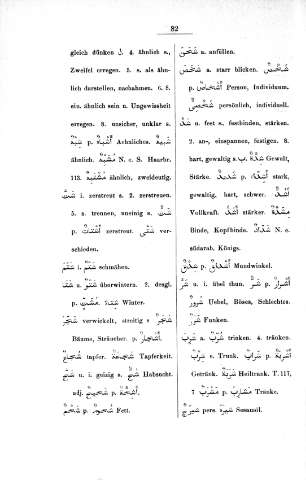 82
gleich dünken لـ 4. ähnlich s.,
Zweifel erregen. 5. s. als ähn-
lich darstellen, nachahmen. 6. 8.
einander ähnlich sein n. Ungewissheit
erregen. 8. unsicher, unklar s.
شبه p. أشباه Aehnliches. شبيه
ähnlich. N. e. S. Haarbr.
113. ähnlich, zweideutig.
شت i. zerstreut s. 2. zerstreuen.
5. s. trennen, uneinig s. شت
p. أشتات zerstreut. شتى ver-
schieden.
شتم i. schmähen.
شتو u. überwintern. 2. desgl.
شتاء p. Winter.
شجر verwickelt, streitig s. شجر
Bäume, Sträucher. p. أشجار.
شجاع tapfer. شجاعة Tapferkeit.
شح u. i. geizig s. Habsucht.
adj. شحيح p. أشحة.
شحم p. شحوم Fett.
شحن a. anfüllen.
شخص a. starr blicken. شخص
p. أشخاص Person, Individuum.
شخصي persönlich, individuell.
شد u. fest s. festbinden, stärken.
2. an-, einspannen, festigen. 8.
hart, gewaltig s. ب. شدة Gewalt,
Stärke. شديد p. شداد stark,
gewaltig, hart, schwer. أشد
Vollkraft. أشد stärker.
Binde, Kopfbinde. شداد N. e.
südarab. Königs.
شدق p. أشداق Mundwinkel.
شر u. i. übel thun. شر p. أشرار
شرور Uebel, Böses, Schlechtes.
شرر Funken.
شرب a. trinken. 4. tränken.
شراب e. Trunk. شراب p. أشربة
Getränk. شربة Heiltrank. T. 117,
7 مشرب p. مشارب Tränke.
شيرج pers. شيره Sesamöl.